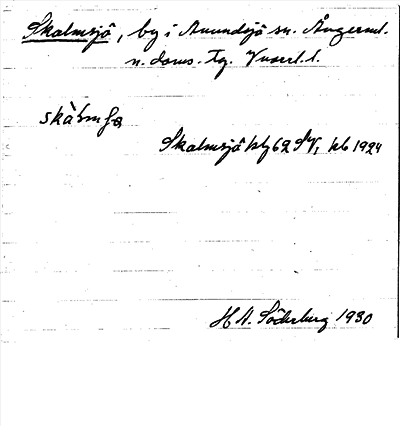 Skalmsjö, by i Anundsjö sn. Ångerml.
n. doms. tg. Vnorrl. l.
skàlmʃɷ
Skalmsjö kbg 62 SV, kb 1924
H N. Söderberg 1930